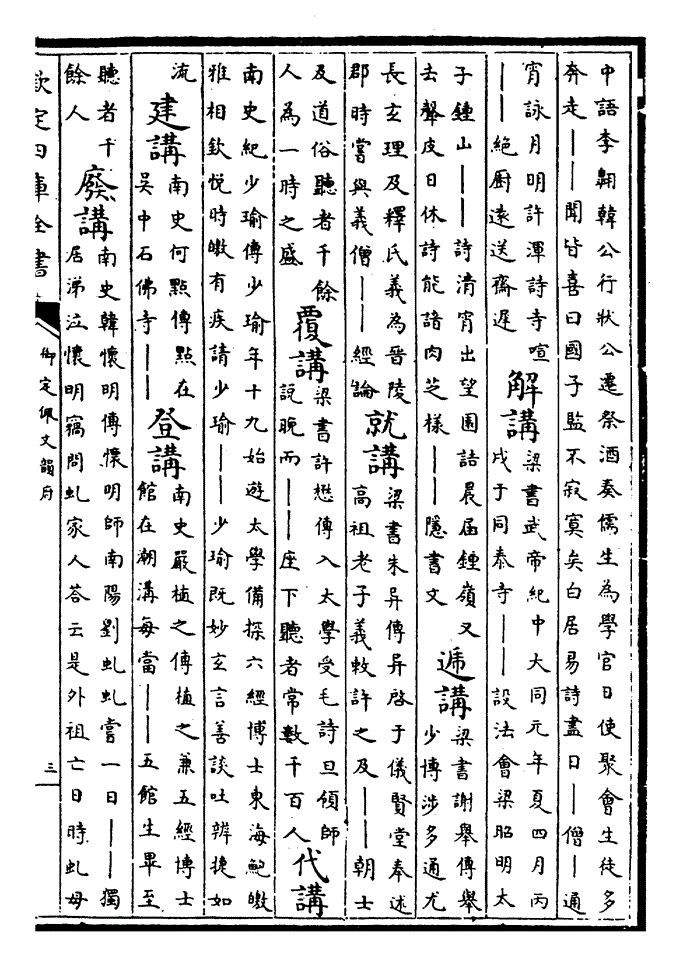 中語李翺韓公行狀公遷祭酒奏儒生為學官日使聚會生徒多
奔走｜｜聞皆喜曰國子監不寂寞矣白居易詩盡日｜｜僧｜通
宵詠月明許渾詩寺喧
｜｜絕厨遠送齋遲
解講
梁書武帝紀中大同元年夏四月丙
戌于同泰寺｜｜設法會梁昭明太
子鍾山｜｜詩清宵出望園詰晨届鍾嶺又
去聲皮日休詩能諳肉芝樣｜｜隱書文
遞講
梁書謝舉傳舉
少博涉多通尤
長玄理及釋氏義為晉陵
郡時嘗與義僧｜｜經論
就講
梁書朱异傳异啓于儀賢堂奉述
高祖老子義敕許之及｜｜朝士
及道俗聽者千餘
人為一時之盛
覆講
梁書許懋傳入太學受毛詩旦領師
說晚而｜｜座下聽者常數千百人
代講
南史紀少瑜傳少瑜年十九始遊太學備探六經博士東海鮑皦
雅相欽悅時皦有疾請少瑜｜｜少瑜既妙玄言善談吐辨捷如
流
建講
南史何點傳點在
吳中石佛寺｜｜
登講
南史嚴植之傳植之兼五經博士
館在潮溝每當｜｜五館生畢至
聽者千
餘人
廢講
南史韓懷明傳懷明師南陽劉虬虬嘗一日｜｜獨
居涕泣懷明竊問虬家人答云是外祖亡日時虬母
欽定四庫全書
御定佩文韻府
三